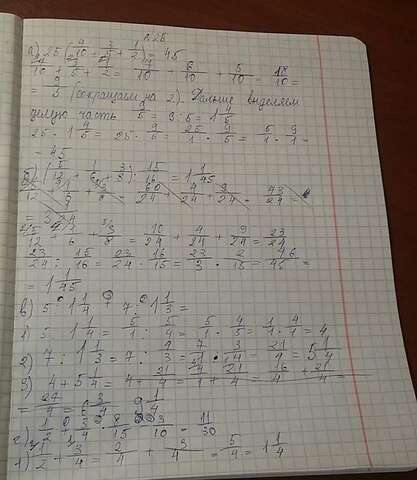 а) 25 (7/10 + 3/5 + 1/2) = 45
7/10 + 3/5 + 1/2 = 7/10 + 6/10 + 5/10 = 18/10 =
= 9/5 (сокращаем на 2). Дальше выделяем
целую часть 9/5 = 9:5 = 1 4/5
25 · 1 4/5 = 25 · 9/5 = 25/1 · 9/5 = 5/1 · 9/1 =
= 45
б) (5/12 + 1/6 + 3/8) : 15/16 = 1 1/45
= 3
5/12 + 1/6 + 3/8 = 10/24 + 4/24 + 9/24 = 23/24
23/24 : 15/16 = 23/24 · 16/15 = 23/3 · 2/15 = 46/45 =
= 1 1/45
в) 5 : 1 1/4 + 7 : 1 1/3 =
1) 5 : 1 1/4 = 5/1 : 5/4 = 5/1 · 4/5 = 1/1 · 4/1 = 4
2) 7 : 1 1/3 = 7 : 4/3 = 7/1 · 3/4 = 21/4 = 5 1/4
3) 4 + 5 1/4 = 4 + 21/4 = 4/1 + 21/4 = 16/4 + 21/4 =
9 1/4
г) 1/2 + 3/4 · 8/15 - 3/10 = 11/30
1) 1/2 + 3/4 = 2/4 + 3/4 = 5/4 = 1 1/4